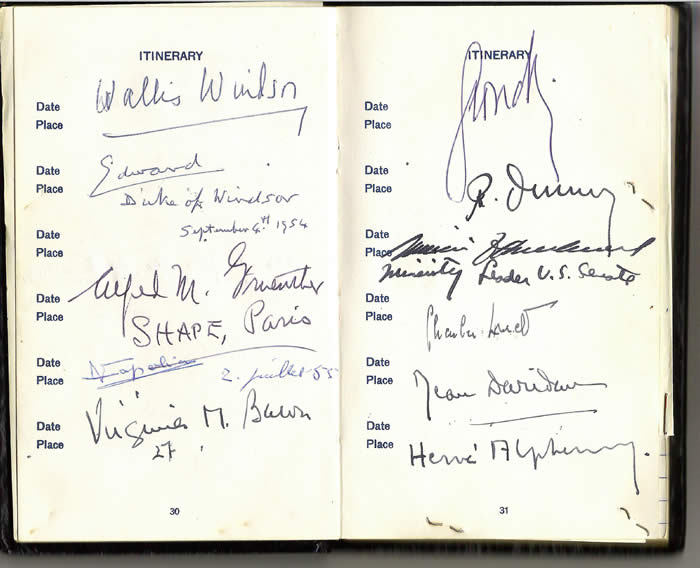 ITINERARY
Wallis Windsor
Date
Place
Date
Edward
Place
Duke of Windsor
September 4th 1954
Date
Place
Alfred M. Gruenther
Date
SHAPE, Paris
Place
Date
2. juillet 55
Place
Date
Virginia M. Bacon
Place
27
30
ITINERARY
Date
Place
Date
Place
Date
Place
Minority Leader U.S. Senate
Date
Place
Charles
Date
Jean
Place
Date
Hervé Alphand
Place
31